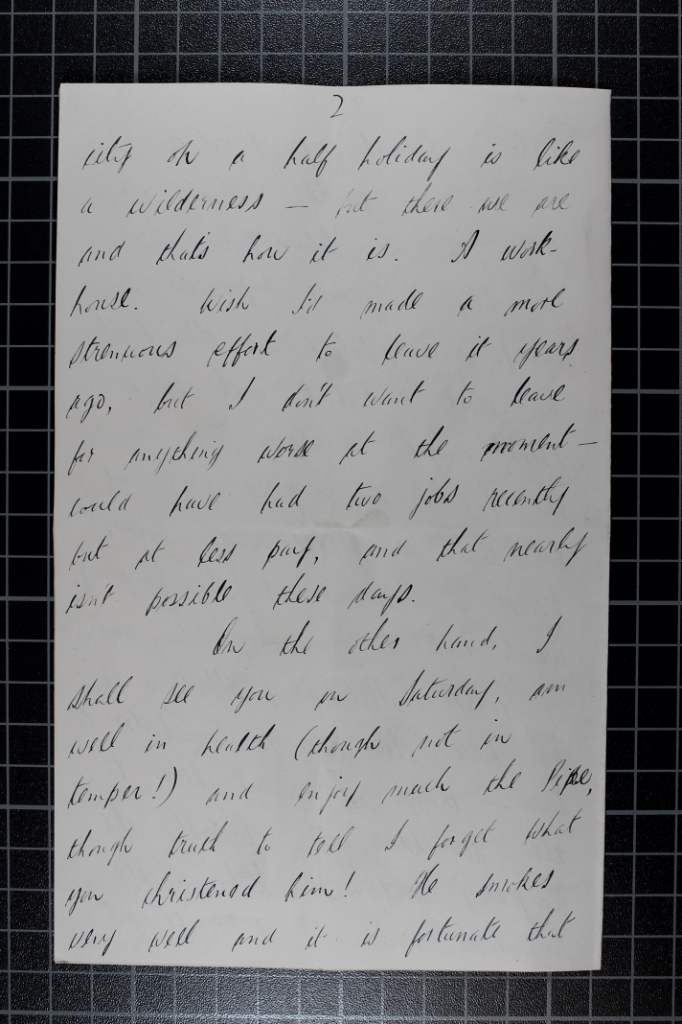 2
city on a half holiday is like
a wilderness — but there we are
and that's how it is. A work-
house. Wish I'd made a more
strenuous effort to leave it years
ago, but I don't want to leave
for anything worse at the moment —
could have had two jobs recently
but at less pay, and that nearly
isn't possible these days.
On the other hand, I
shall see you on Saturday, am
well in health (though not in
temper!) and enjoy much the Pipe,
though truth to tell I forget what
you christened him! He smokes
very well and it is fortunate that